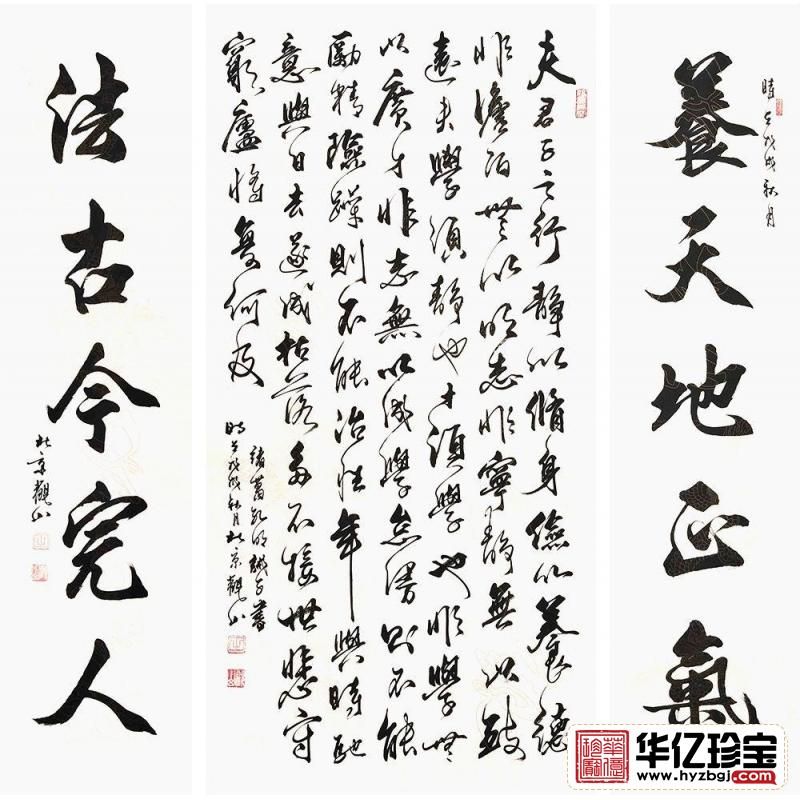 養天地正氣
時在戊戌秋月
夫君子之行靜以脩身儉以養德
非澹泊無以明志非寧靜無以致
遠夫學須靜也才須學也非學無
以廣才非志無以成學怠慢則不能
勵精險躁則不能冶性年與時馳
意與日去遂成枯落多不接世悲守
窮廬將復何及
諸葛孔明誡子書
時在戊戌秋月北京觀山
法古今完人
北京觀山
華億珍寶
华亿珍宝
www.hyzbgj.com